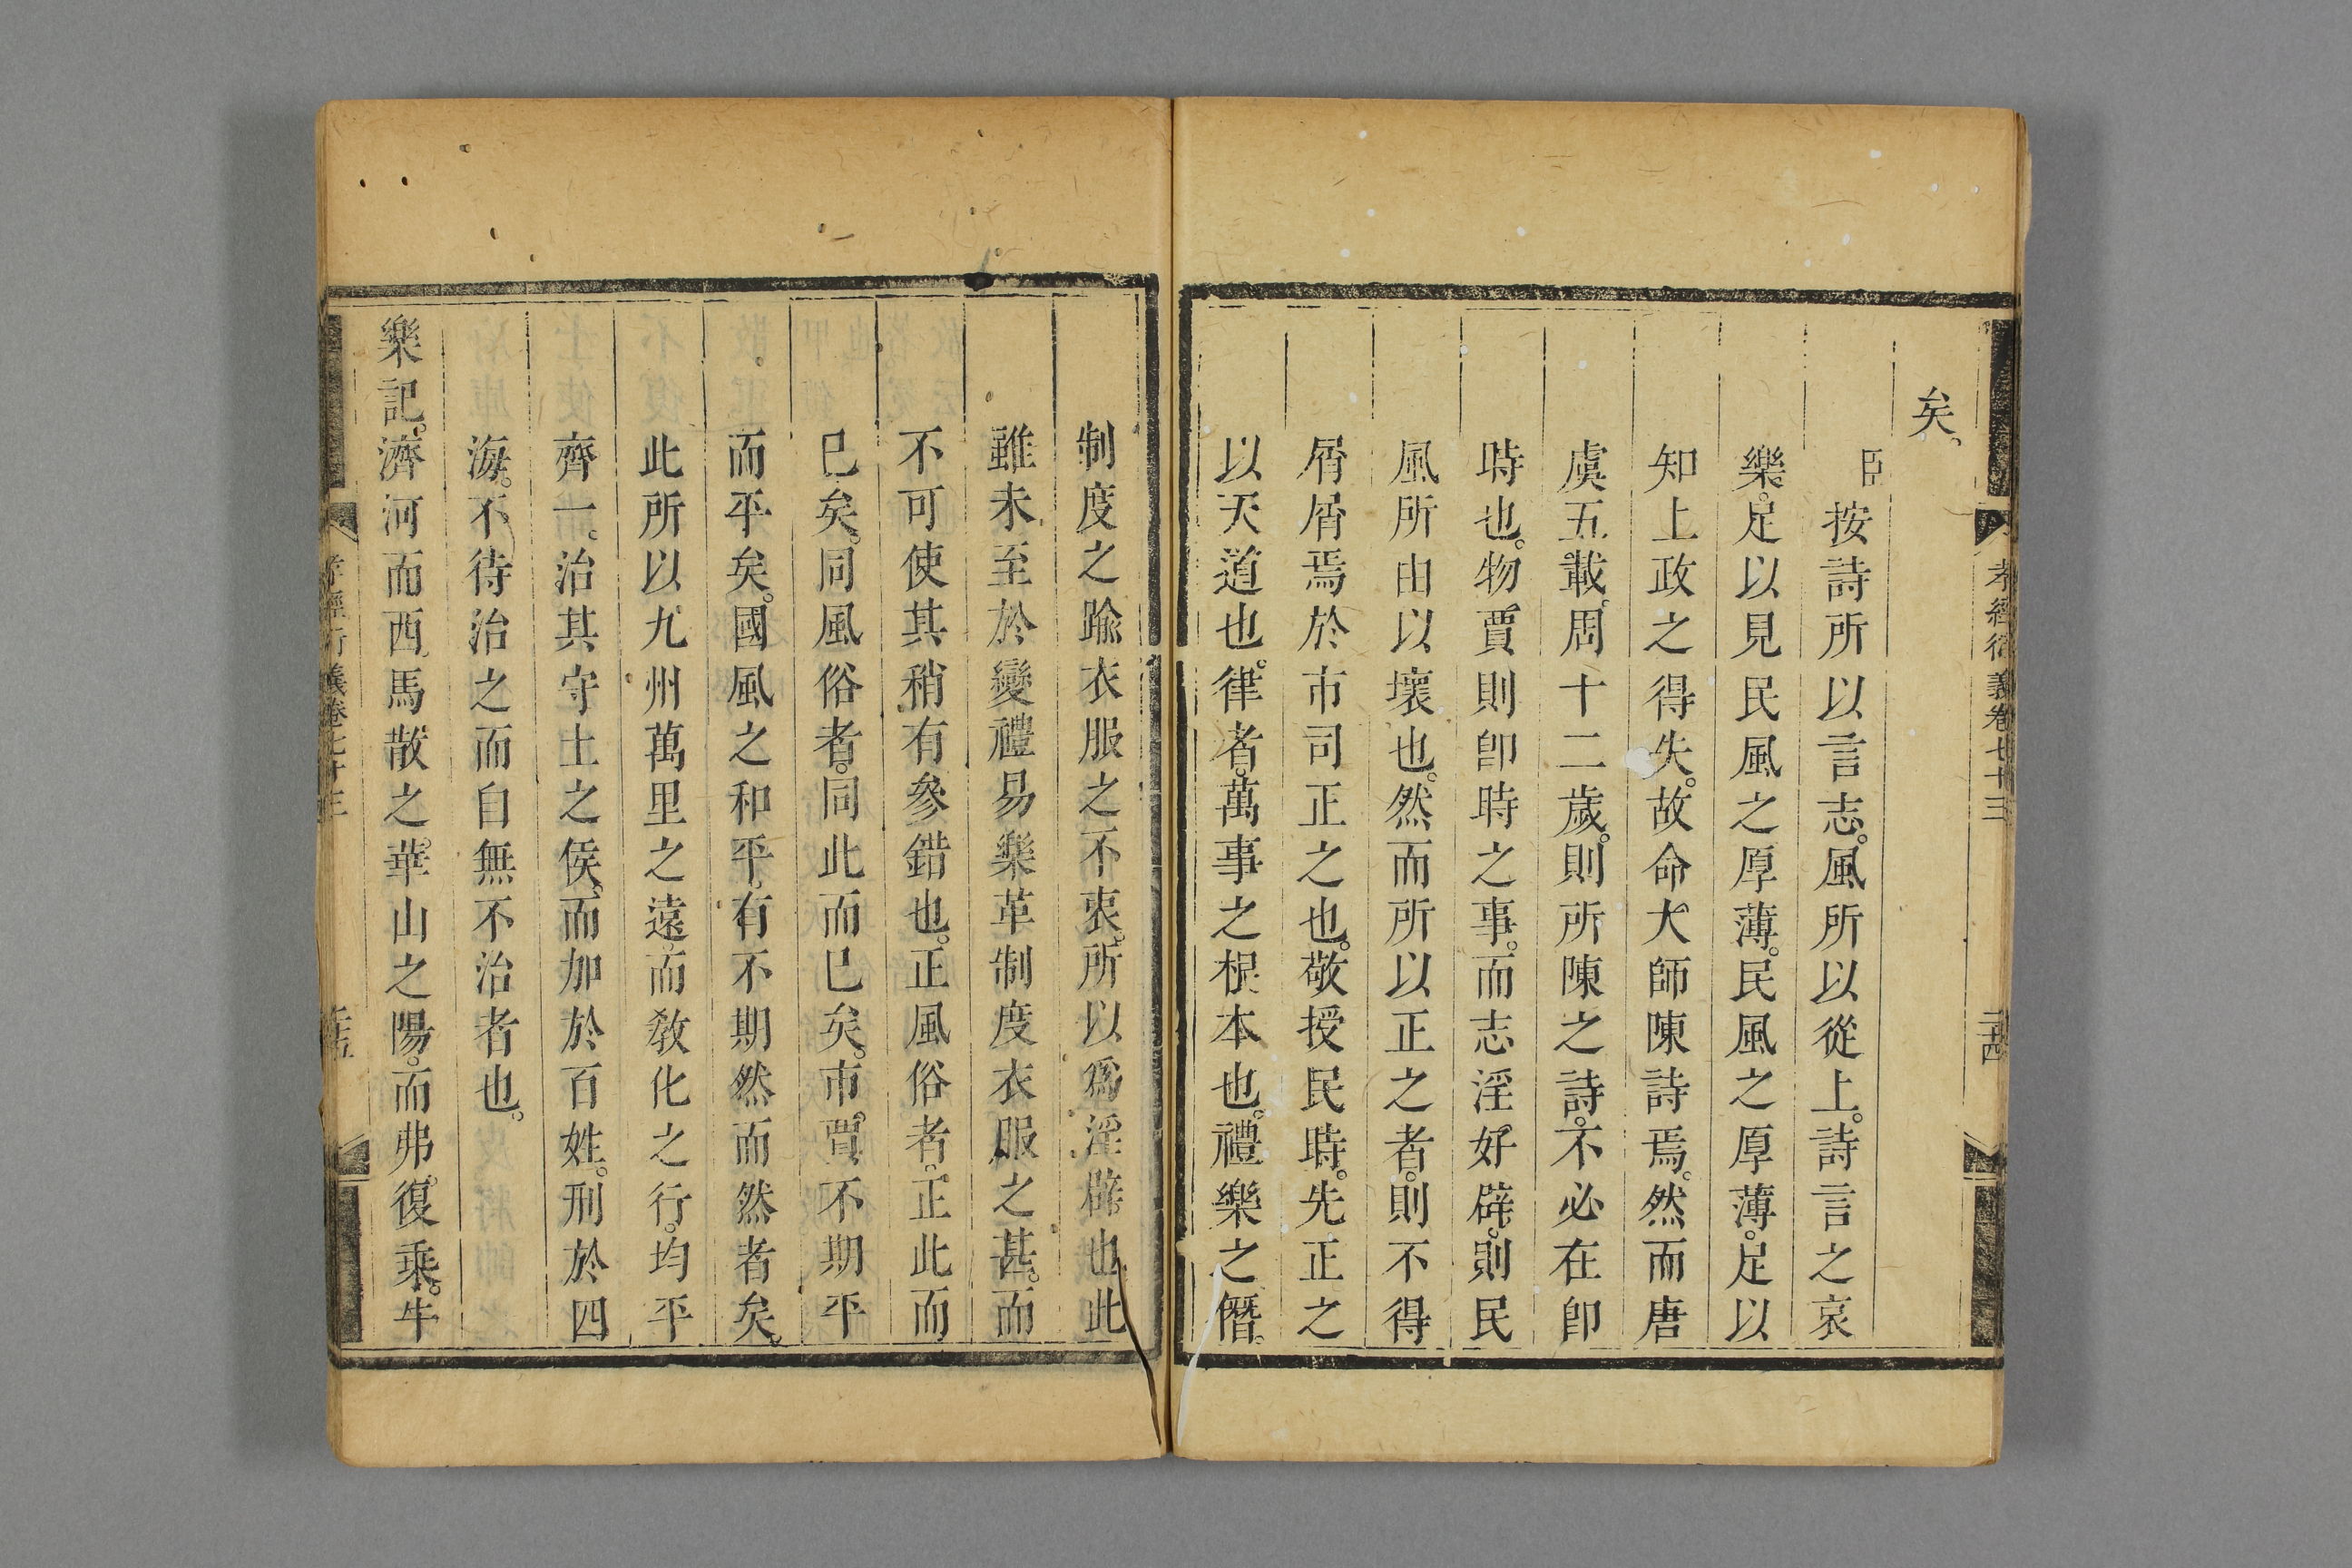 孝經衍義卷七十三
二十四
矣。
臣按詩所以言志。風所以從上。詩言之哀
樂。足以見民風之厚薄。民風之厚薄。足以
知上政之得失。故命大師陳詩焉。然而唐
虞五載。周十二歲。則所陳之詩。不必在卽
時也。物賈則卽時之事。而志淫好辟。則民
風所由以壞也。然而所以正之者。則不得
屑屑焉於市司正之也。敬授民時。先正之
以天道也。律者。萬事之根本也。禮樂之僭。
制度之踰衣服之不衷。所以爲淫辟也此
雖未至於變禮易樂革制度衣服之甚。而
不可使其稍有參錯也。正風俗者。正此而
已矣。同風俗者。同此而已矣。市賈不期平
而平矣。國風之和平。有不期然而然者矣。
此所以九州萬里之遠。而敎化之行。均平
齊一。治其守土之侯。而加於百姓。刑於四
海。不待治之而自無不治者也。
樂記。濟河而西。馬散之。華山之陽。而弗復乘。牛
孝經衍義卷七十三
二十五